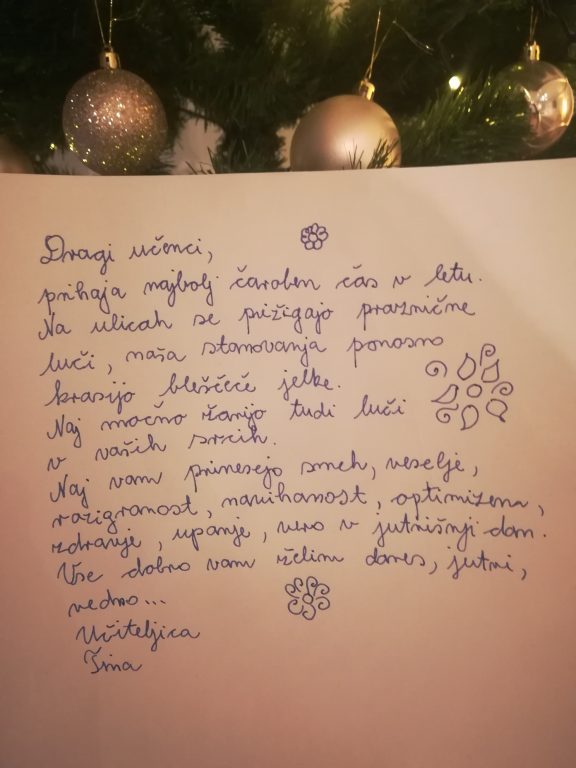 Dragi učenci,
prihaja najbolj čaroben čas v letu.
Na ulicah se prižigajo praznične
luči, naša stanovanja ponosno
krasijo bleščeče jelke.
Naj močno žarijo tudi luči
v vaših srcih.
Naj vam prinesejo smeh, veselje,
razigranost, navihanost, optimizem,
zdravje, upanje, vero v jutrišnji dan.
Vse dobro vam želim danes, jutri,
vedno...
Učiteljica